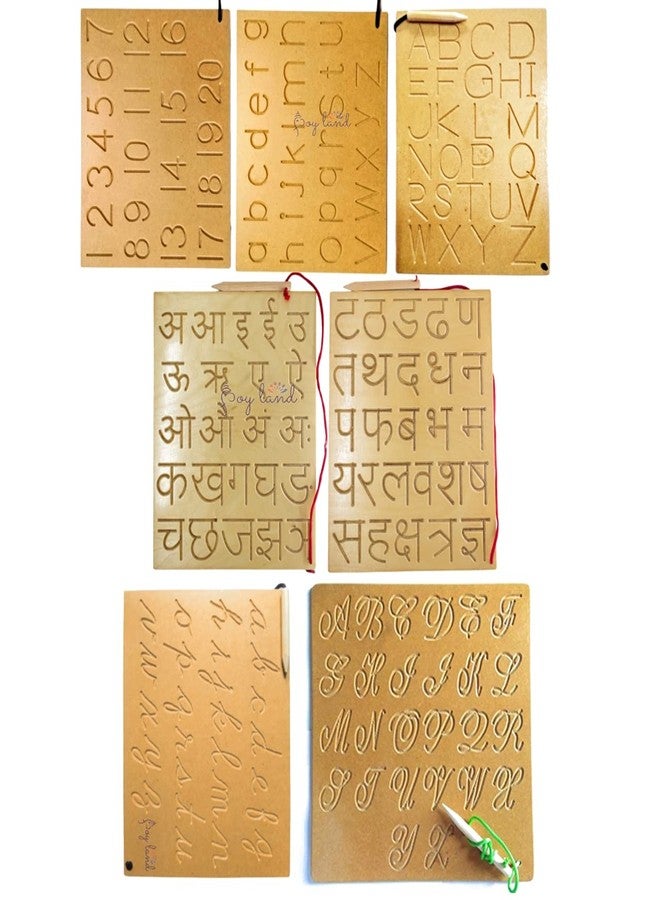 1 2 3 4 5 6 7
8 9 10 11 12
13 14 15 16
17 18 19 20
a b c d e f g
h i j k l m n
o p q r s t u
v w x y z
A B C D
E F G H I
J K L M
N O P Q
R S T U V
W X Y Z
अ आ इ ई उ
ऊ ऋ ए ऐ
ओ औ अं अः
क ख ग घ ङ
च छ ज झ ञ
ट ठ ड ढ ण
त थ द ध न
प फ ब भ म
य र ल व श ष
स ह क्ष त्र ज्ञ
a b c d e f g
h i j k l m n
o p q r s t u
v w x y z
A B C D E F
G H I J K L
M N O P Q R
S T U V W X
Y Z